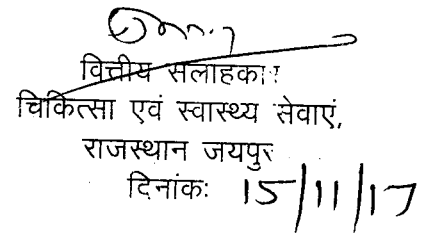 वित्तीय सलाहकार
चिकित्सा एवं स्वास्थ्य सेवाएं,
राजस्थान जयपुर
दिनांकः 15/11/17